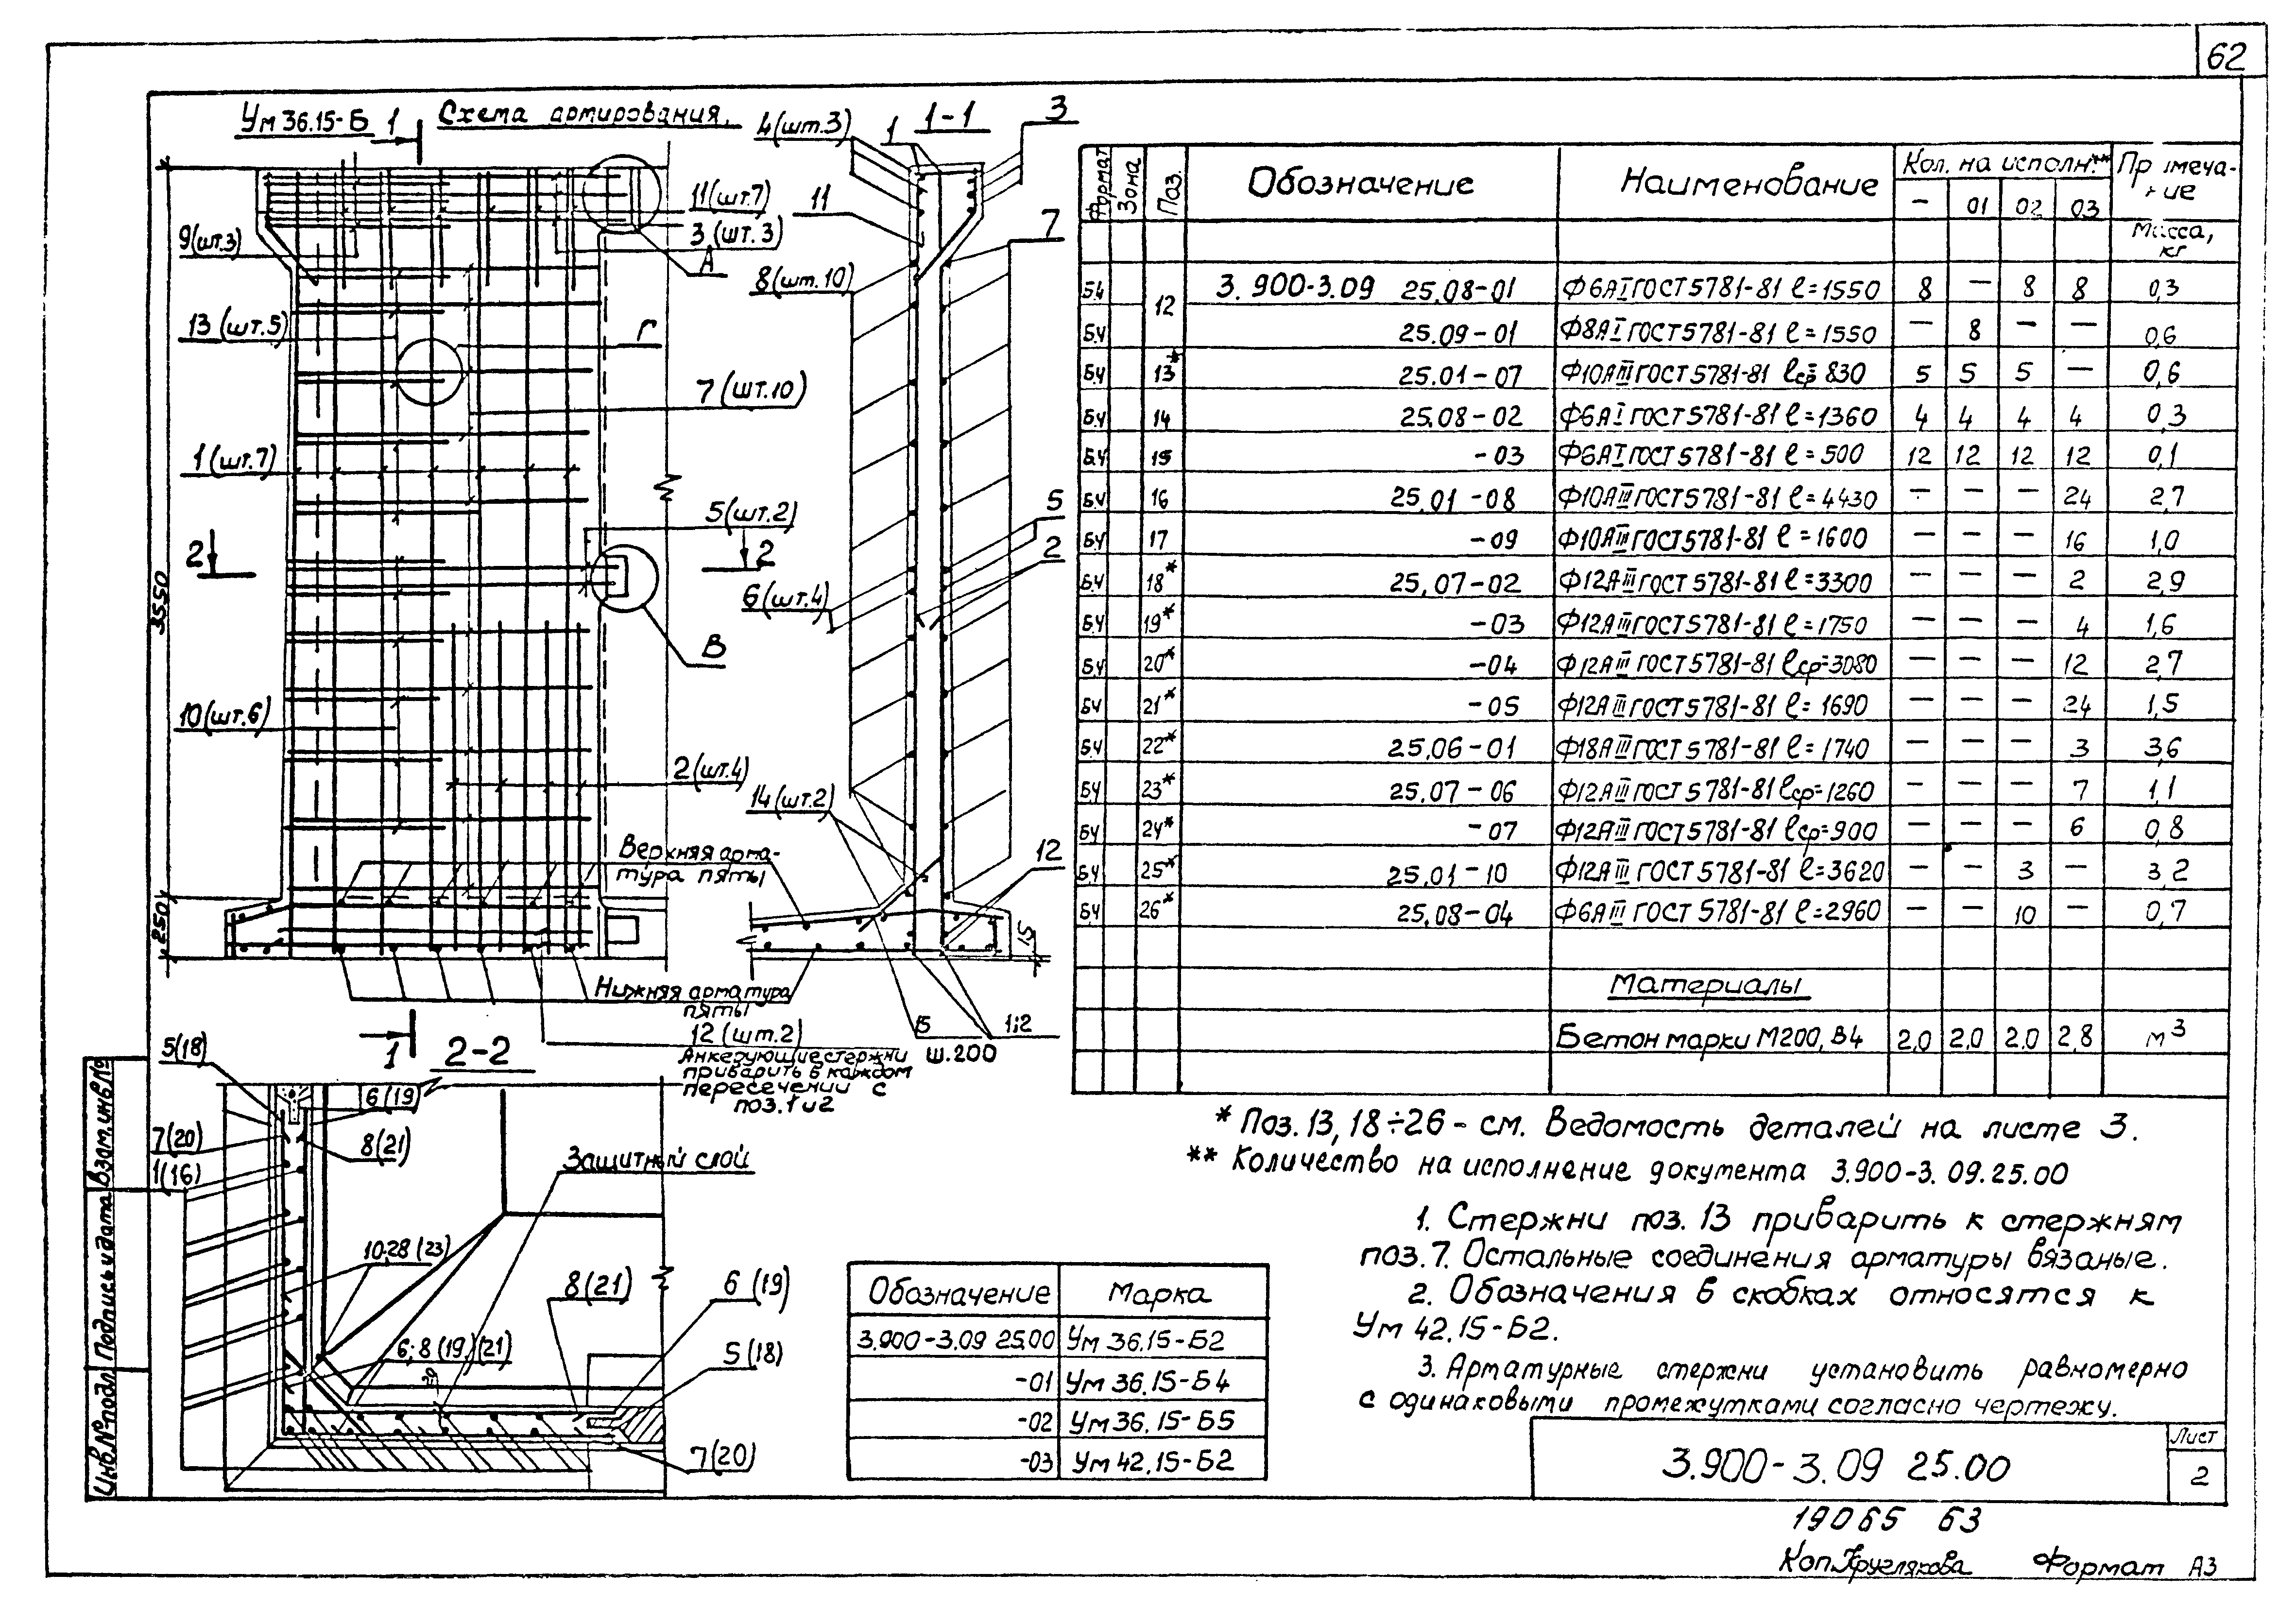 62
Ум 36.15-Б
1
Схема армирования.
4 (шт.3)
1
1-1
3
11 (шт.7)
11
3 (шт.3)
9(шт.3)
А
7
8 (шт.10)
13 (шт.5)
Г
7 (шт.10)
1 (шт.7)
5 (шт.2)
5
2
2
2
3550
6 (шт.4)
В
10 (шт.6)
2 (шт.4)
14 (шт.2)
Верхняя арма-
тура пяты
12
250
15
Нижняя арматура
пяты
12 (шт.2)
Анкерующие стержни
приварить в каждом
пересечении с
поз.1 и 2
15
ш.200
1;2
1
2-2
5(18)
6 (19)
7(20)
8(21)
1(16)
Защитный слой
10;28 (23)
8(21)
6 (19)
6;8 (19)(21)
20
5 (18)
7(20)
Формат Зона Поз. Обозначение Наименование Кол. на исполн.** Примеча-
ние
- 01 02 03
Масса,
кг
Б4 12 3.900-3.09 25.08-01 Ф6АI ГОСТ 5781-81 ℓ=1550 8 — 8 8 0,3
БЧ 25.09-01 Ф8АI ГОСТ 5781-81 ℓ=1550 — 8 — — 0,6
БЧ 13* 25.01-07 Ф10АIII ГОСТ 5781-81 ℓср=830 5 5 5 — 0,6
БЧ 14 25.08-02 Ф6АI ГОСТ 5781-81 ℓ=1360 4 4 4 4 0,3
БЧ 15 -03 Ф6АI ГОСТ 5781-81 ℓ=500 12 12 12 12 0,1
БЧ 16 25.01-08 Ф10АIII ГОСТ 5781-81 ℓ=4430 — — — 24 2,7
БЧ 17 -09 Ф10АIII ГОСТ 5781-81 ℓ=1600 — — — 16 1,0
БЧ 18* 25.07-02 Ф12АIII ГОСТ 5781-81 ℓ=3300 — — — 2 2,9
БЧ 19* -03 Ф12АIII ГОСТ 5781-81 ℓ=1750 — — — 4 1,6
БЧ 20* -04 Ф12АIII ГОСТ 5781-81 ℓср=3080 — — — 12 2,7
БЧ 21* -05 Ф12АIII ГОСТ 5781-81 ℓ=1690 — — — 24 1,5
БЧ 22* 25.06-01 Ф18АIII ГОСТ 5781-81 ℓ=1740 — — — 3 3,6
БЧ 23* 25.07-06 Ф12АIII ГОСТ 5781-81 ℓср=1260 — — — 7 1,1
БЧ 24* -07 Ф12АIII ГОСТ 5781-81 ℓср=900 — — — 6 0,8
БЧ 25* 25.01-10 Ф12АIII ГОСТ 5781-81 ℓ=3620 — — 3 — 3,2
БЧ 26* 25.08-04 Ф6АIII ГОСТ 5781-81 ℓ=2960 — — 10 — 0,7
Материалы
Бетон марки М200, В4 2,0 2,0 2,0 2,8 м3
* Поз. 13, 18÷26 - см. Ведомость деталей на листе 3.
** Количество на исполнение документа 3.900-3.09.25.00
1. Стержни поз. 13 приварить к стержням
поз. 7. Остальные соединения арматуры вязаные.
2. Обозначения в скобках относятся к
Ум 42.15-Б2.
3. Арматурные стержни установить равномерно
с одинаковыми промежутками согласно чертежу.
Обозначение Марка
3.900-3.09 25.00 Ум 36.15-Б2
-01 Ум 36.15-Б4
-02 Ум 36.15-Б5
-03 Ум 42.15-Б2
3.900-3.09 25.00
Лист
2
Взам.инв№
Подпись и дата
Инв.№подл.
19065 63
Коп. Круглякова Формат А3